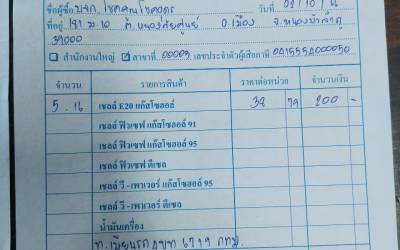 ชื่อผู้ซื้อ บจก. โชคคูณโชคอุดร วันที่ 02/10/
ที่อยู่ 191 ม.10 ต.หนองภัยศูนย์ อ.เมือง จ.หนองบัวลำภู
39000
สำนักงานใหญ่ สาขาที่ 00003 เลขประจำตัวผู้เสียภาษี
จำนวน รายการสินค้า ราคาต่อหน่วย จำนวนเงิน
5.16 เชลล์ E20 แก๊สโซฮอล์ 38 79 200 -
เชลล์ ฟิวเซฟ แก๊สโซฮอล์ 91
เชลล์ ฟิวเซฟ แก๊สโซฮอล์ 95
เชลล์ ฟิวเซฟ ดีเซล
เชลล์ วี-เพาเวอร์ แก๊สโซฮอล์ 95
เชลล์ วี-เพาเวอร์ ดีเซล
น้ำมันเครื่อง
ท.เบียนรถ 6719 กทม.